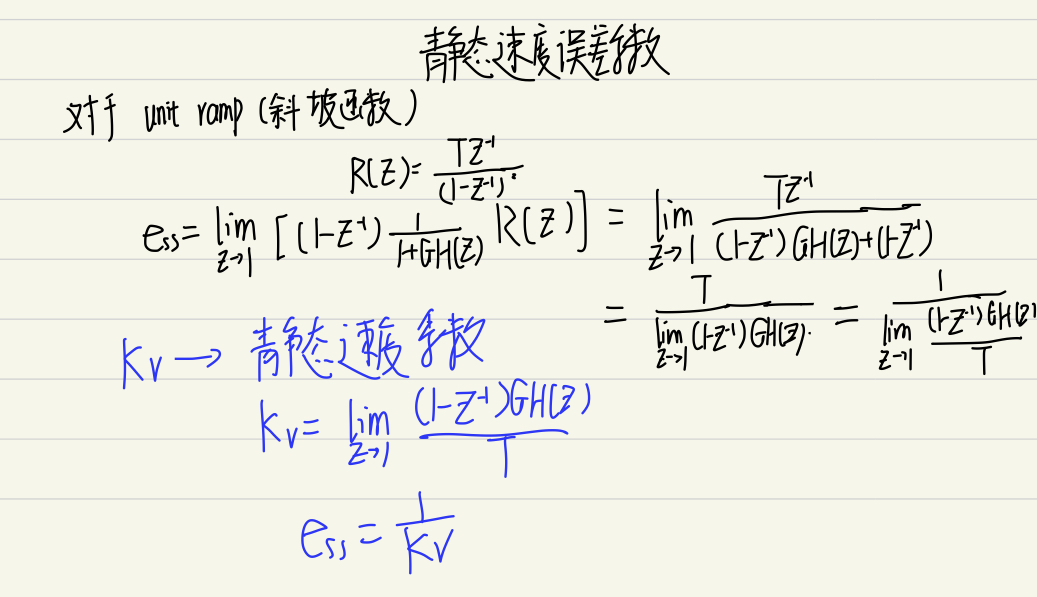 静态速度误差系数
对于 unit ramp (斜坡函数)
R(Z)= TZ⁻¹/(1-Z⁻¹)²
ess= lim Z→1 [(1-Z⁻¹) 1/(1+GH(Z)) R(Z)] = lim Z→1 TZ⁻¹/((1-Z⁻¹)GH(Z)+(1-Z⁻¹))
= T/(lim Z→1 (1-Z⁻¹)GH(Z)) = 1/(lim Z→1 (1-Z⁻¹)GH(Z)/T)
Kv → 静态速度系数
Kv= lim Z→1 (1-Z⁻¹)GH(Z)/T
ess = 1/Kv